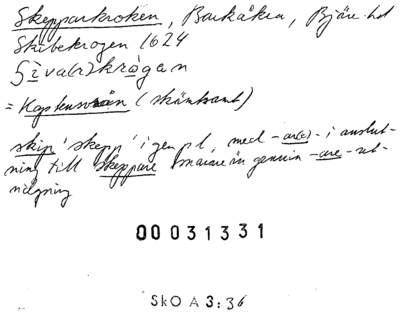 Skepparkroken, Barkåkra, Bjäre hd
Skibekrogen 1624
ʃìva(r)krògan
= Kaptensvrån (skämtsamt)
skip 'skepp' i gen pl, med -ar(e)- i anslut-
ning till skeppare snarare än genuin -are-ut-
vidgning
00031331
SkO A 3:36